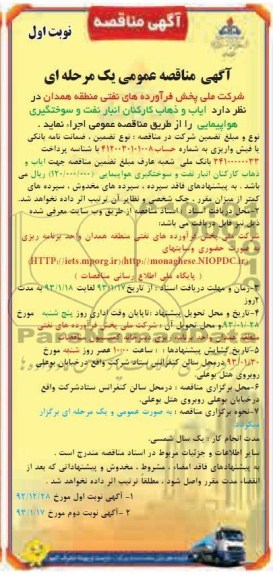 آگهی مناقصه
نوبت اول
آگهی مناقصه عمومی یک مرحله ای
شرکت ملی پخش فرآورده های نفتی منطقه همدان در
نظر دارد ایاب و ذهاب کارکنان انبار نفت و سوختگیری
هواپیمایی را از طریق مناقصه عمومی اجراء نماید .
نوع و مبلغ تضمین شرکت در مناقصه : نوع تضمین ، ضمانت نامه بانکی
یا فیش واریزی به شماره حساب با شناسه پرداخت
بانک ملی شعبه عارف مبلغ تضمین مناقصه جهت ایاب و
ذهاب کارکنان انبار نفت و سوختگیری هواپیمایی (۱۲۰/۰۰۰/۰۰۰) ریال می
باشد . به پیشنهادهای فاقد سپرده ، سپرده های مخدوش ، سپرده های
کمتر از میزان مقرر ، چک شخصی و نظایر آن ترتیب اثر داده نخواهد شد.
۲-محل دریافت اسناد : اسناد مناقصه از طریق وب سایت معرفی شده
ذیل نیز قابل دریافت می باشد:
شرکت ملی پخش فرآورده های نفتی منطقه همدان واحد برنامه ریزی
به صورت حضوری وسایتهای
(HTTP//iets.mporg.ir)(http//monaghese.NIOPDC.ir)
( پایگاه ملی اطلاع رسانی مناقصات )
۳-زمان و مهلت دریافت اسناد : از تاریخ لغایت ۹۳/۱/۱۸ به مدت
۲روز
۴-تاریخ و محل تحویل پیشنهاد :تاپایان وقت اداری روز پنج شنبه مورخ
۹۳/۰۱/۲۸ و محل تحویل آن : شرکت ملی پخش فرآورده های نفتی
۵-تاریخ گشایش پیشنهادها : : ساعت ۱۰/۰۰ عصر روز شنبه مورخ
۹۳/۰۱/۳۰ درمحل سالن کنفرانس ستاد شرکت واقع درخیابان بوعلی
روبروی هتل بوعلی.
۶-محل برگزاری مناقصه : درمحل سالن کنفرانس ستادشرکت واقع
درخیابان بوعلی روبروی هتل بوعلی.
۷-نحوه برگزاری مناقصه : به صورت عمومی و یک مرحله ای برگزار
میگردد.
مدت انجام کار : یک سال شمسی.
سایر اطلاعات و جزئیات مربوط در اسناد مناقصه مندرج است .
به پیشنهادهای فاقد امضاء ، مشروط ، مخدوش و پیشنهاداتی که بعد از
انقضاء مدت مقرر واصل شود ، مطلقا ترتیب اثر داده نخواهد شد .
۱- آگهی نوبت اول مورخ ۹۲/۱۲/۲۸
۲-آگهی نوبت دوم مورخ ۹۳/۱/۱۷